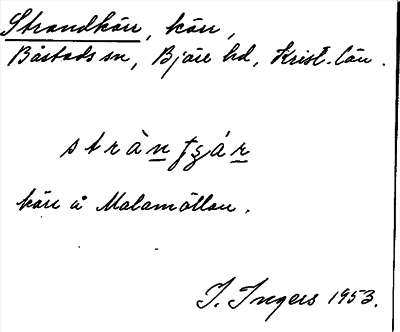 Strandkärr, kärr,
Båstads sn, Bjäre hd, Krist. län.
kärr å Malamöllan.
I. Ingers 1953.